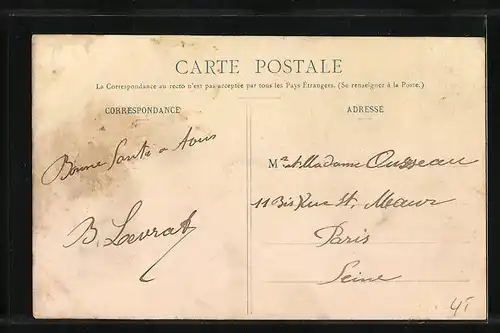 CARTE POSTALE
La Correspondance au recto n'est pas acceptée par tous les Pays Étrangers. (Se renseigner à la Poste.)
CORRESPONDANCE
ADRESSE
Bonne Santé a tous
B. Levrat
Mr et Madame Ousseau
11 Bis Rue St. Maur
Paris
Seine